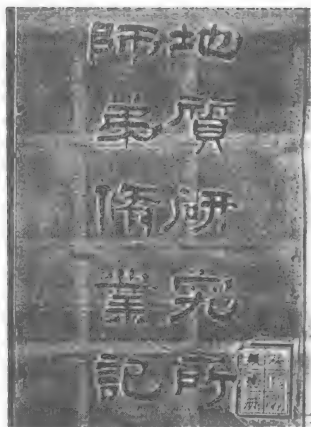 地質研究所
師弟修業記